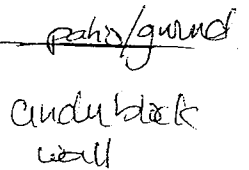 patio/ground
cinder block
wall